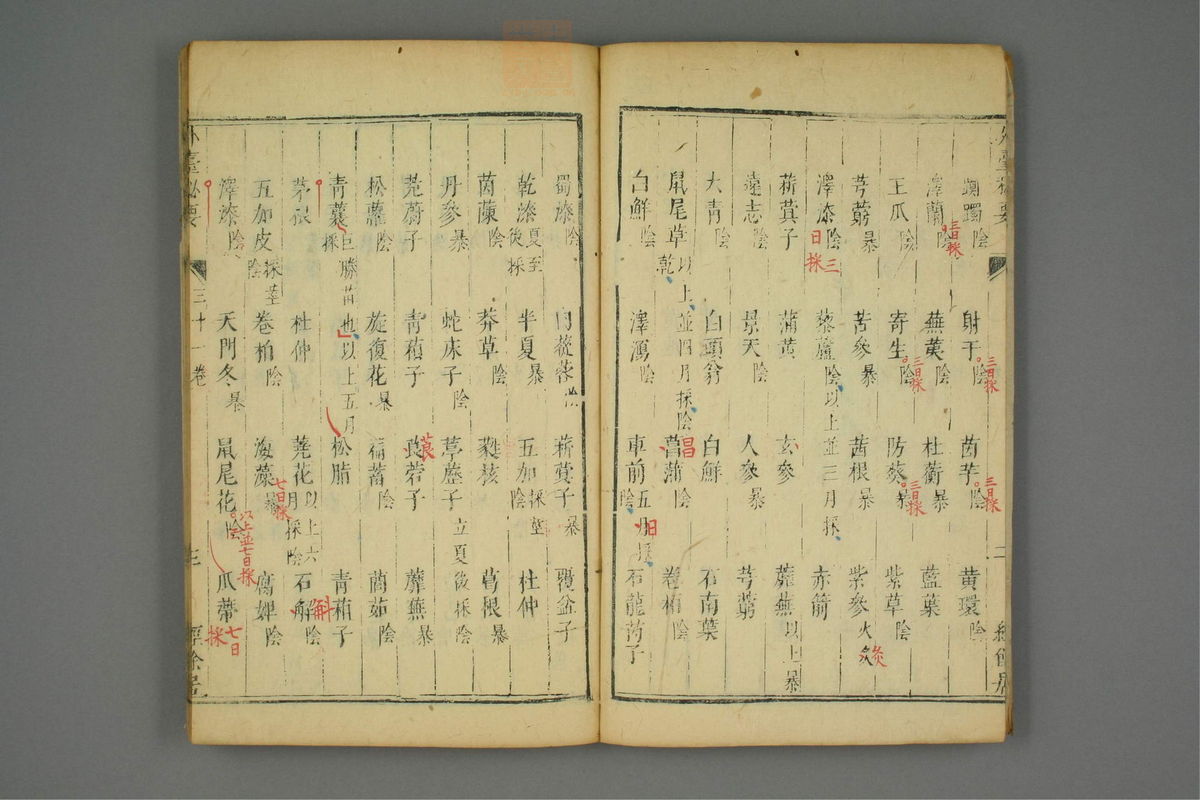 外臺秘要
躑躅陰 射干陰 茵芋陰 黃環陰
三日採
三日採
澤蘭陰 蕪荑陰 杜蘅暴 藍葉
三日採
王瓜陰 寄生陰 防葵暴 紫草陰
三日採
三日採
芎藭暴 苦參暴 茜根暴 紫參火炙
灸
澤漆陰 藜蘆陰以上並三月採 赤箭
三日採
菥蓂子 蒲黃 玄參 蘼蕪以上暴
遠志陰 景天陰 人參暴 芎藭
大青陰 白頭翁 白鮮 石南葉
鼠尾草以上並四月採陰乾 菖蒲陰 卷柏陰
昌
白鮮陰 澤瀉陰 車前五月採陰 石龍芮子
日
蜀漆陰 肉蓯蓉陰 菥蓂子暴 覆盆子
乾漆夏至後採 半夏暴 五加採莖陰 杜仲
茵蔯陰 莽草陰 蕤核 葛根暴
丹參暴 蛇床子陰 葶藶子立夏後採陰
茺蔚子 青葙子 莨菪子 蘼蕪暴
莨
松蘿陰 旋復花暴 萹蓄陰 藺茹陰
青蘘巨勝苗也以上五月採 松脂 青葙子
茅根 杜仲 蕘花以上六月採陰 石解陰
斛
五加皮採莖陰 卷柏陰 海藻暴 腐婢陰
七日採
澤漆陰 天門冬暴 鼠尾花陰 瓜蒂
以上並七日採
七日採
外臺秘要 三十一卷